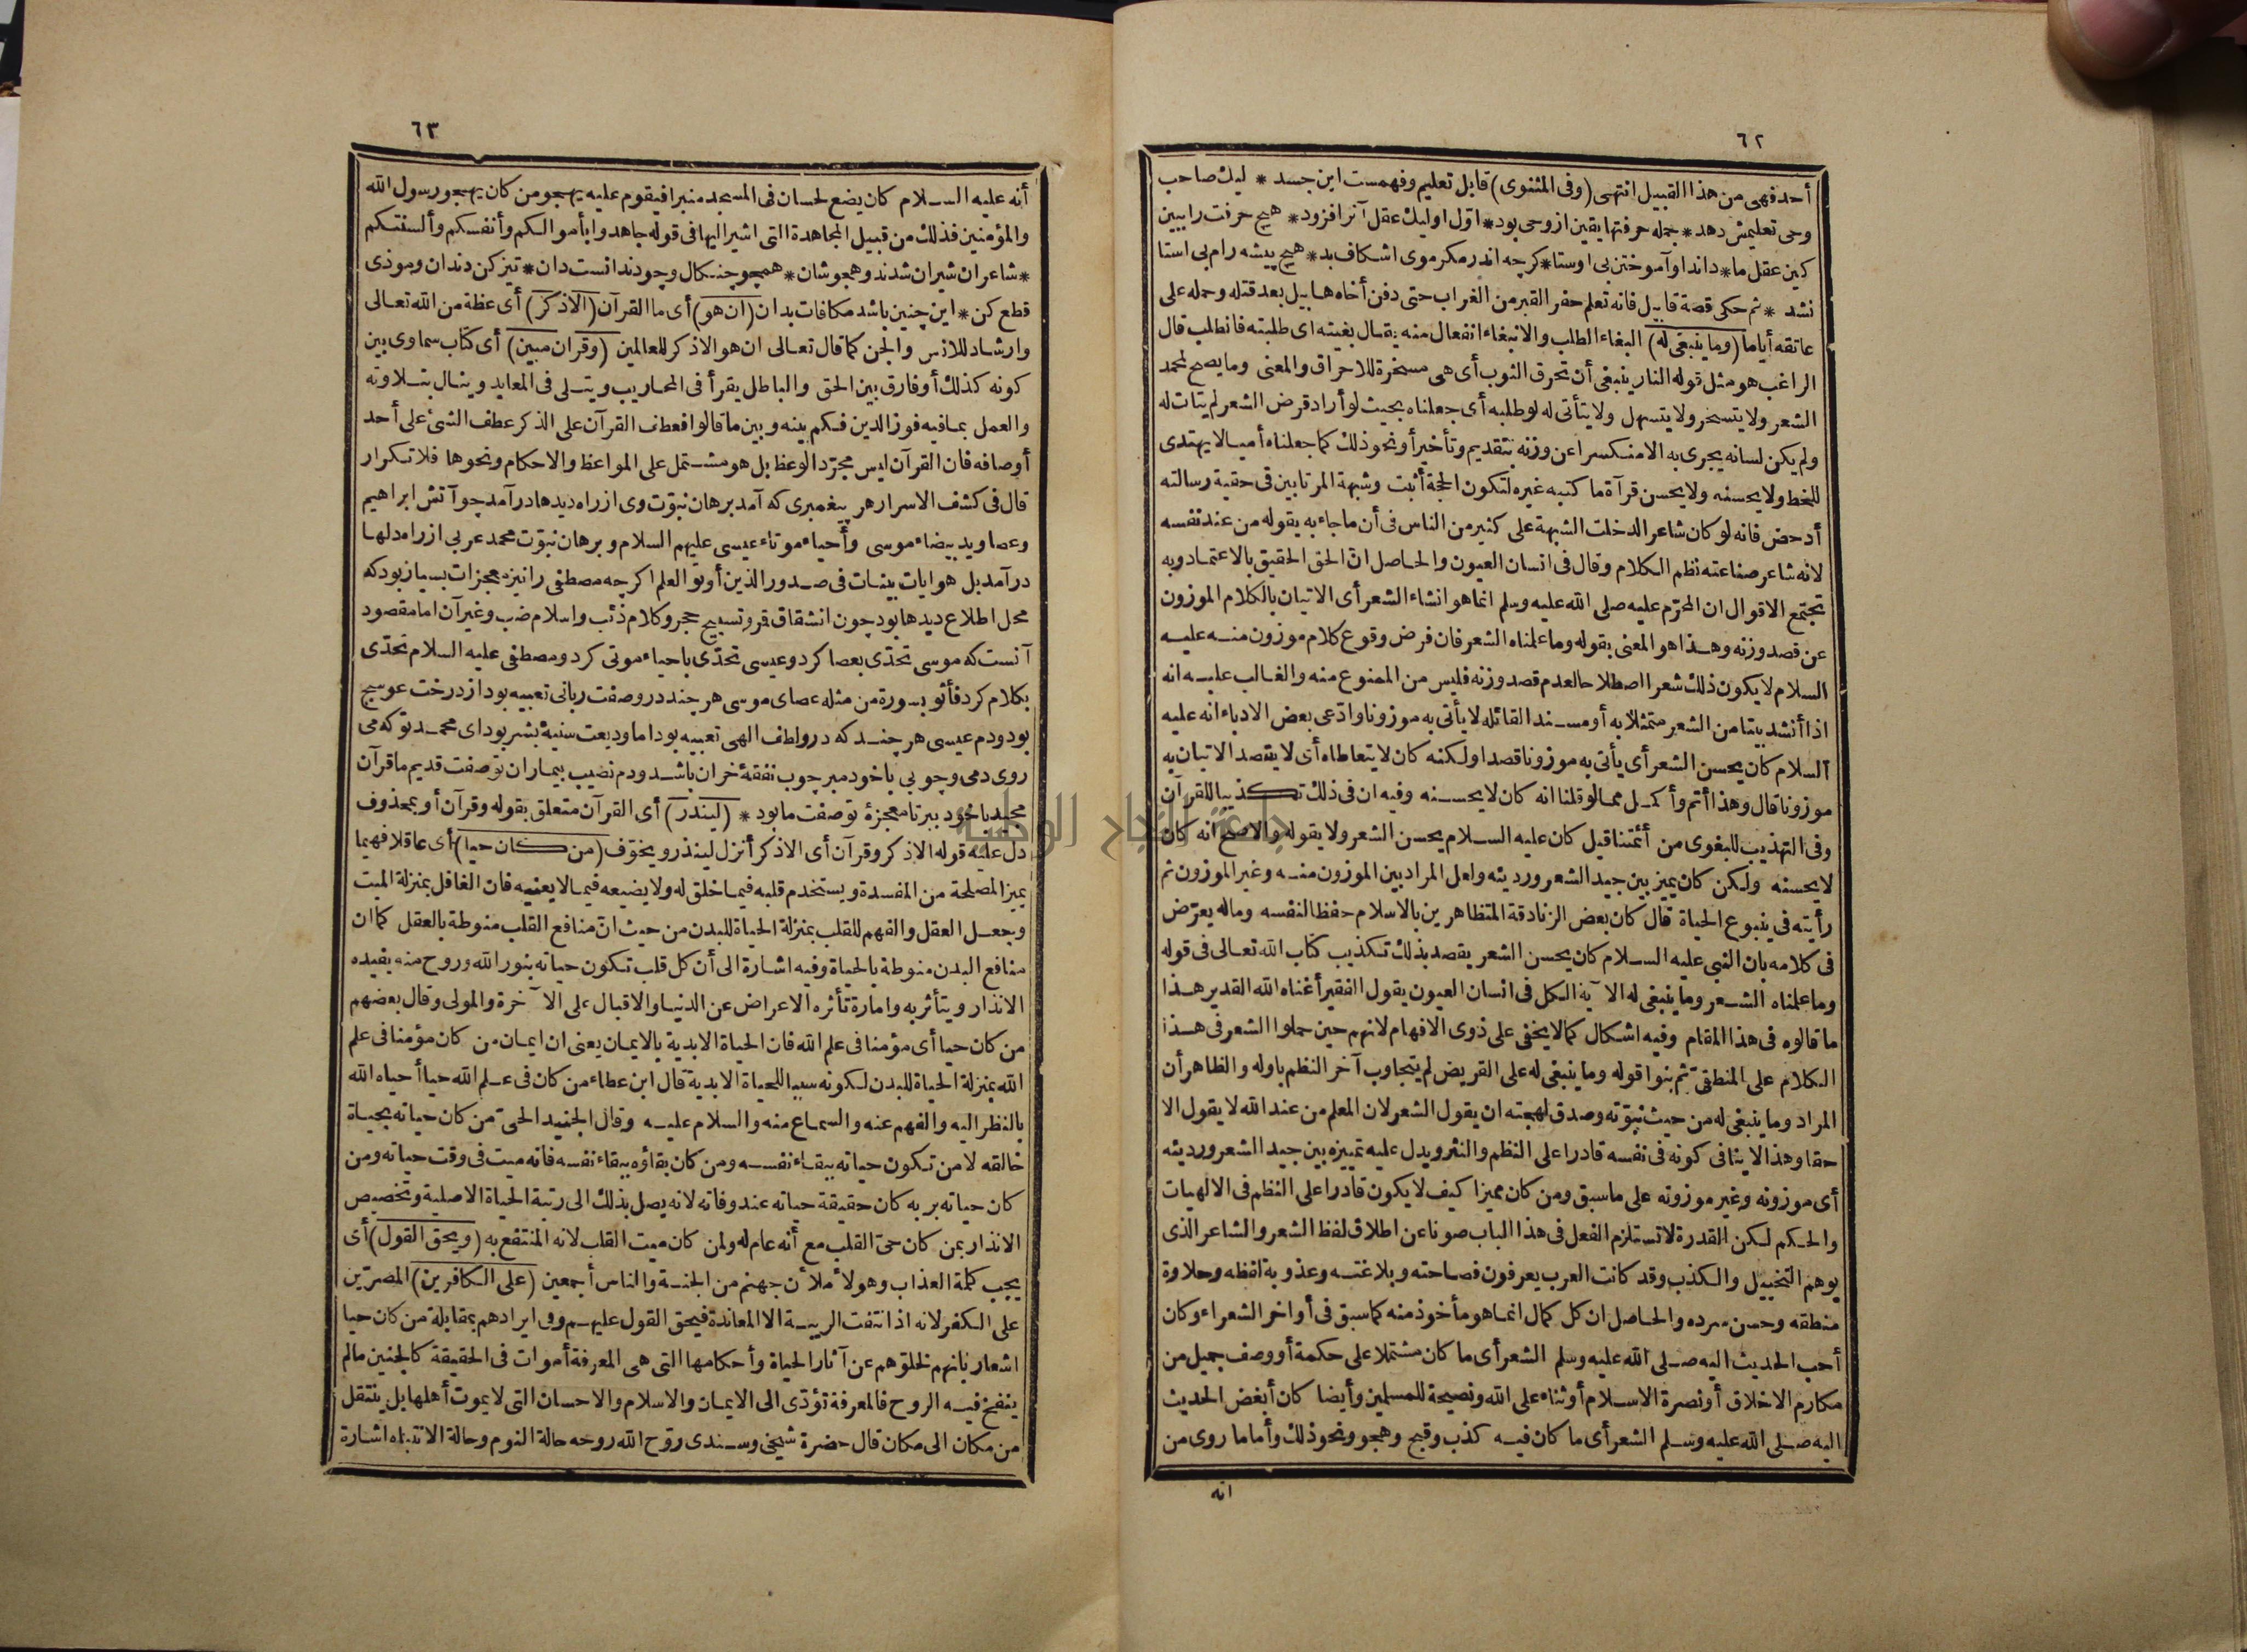 ٦٢
أحد فهى من هذا القبيل انتهى (وفى المثنوى) قابل تعليم وفهمست اين جسد * ليك صاحب
وحى تعليمش دهد * جمله حرفتها يقين از وحى بود * اوّل او ليك عقل آنرا فزود * هيچ حرفت را ببين
كين عقل ما * داند او آموختن بى اوستا * كرچه اندر مكر موى اشكاف بد * هيچ پيشه رام بى استا
نشد * ثم حكى قصة قابيل فانه تعلم حفر القبر من الغراب حتى دفن أخاه هابيل بعد قتله وحمله على
عاتقه أياما (وما ينبغى له) البغاء الطلب والانبغاء انفعال منه يقال بغيته اى طلبته فانطلب قال
الراغب هو مثل قوله النار ينبغى أن تحرق الثوب أى هى مسخرة للاحراق والمعنى وما يصح لمحمد
الشعر ولا يتسخر ولا يتسهل ولا يتأتى له لو طلبه أى جعلناه بحيث لو أراد قرض الشعر لم يتات له
ولم يكن لسانه يجرى به الا منكسرا عن وزنه بتقديم وتأخير أو نحو ذلك كما جعلناه أميا لا يهتدى
للخط ولا يحسنه ولا يحسن قرآءة ما كتبه غيره لتكون الحجة أثبت وشبهة المرتابين فى حقية رسالته
أدحض فانه لو كان شاعرا لدخلت الشبهة على كثير من الناس فى أن ما جاء به يقوله من عند نفسه
لانه شاعر صناعته نظم الكلام وقال فى انسان العيون والحاصل انّ الحق الحقيق بالاعتماد وبه
تجتمع الاقوال ان المحرّم عليه صلى الله عليه وسلم انما هو انشاء الشعر أى الاتيان بالكلام الموزون
عن قصد وزنه وهذا هو المعنى بقوله وما علمناه الشعر فان فرض وقوع كلام موزون منه عليه
السلام لا يكون ذلك شعرا اصطلاحا لعدم قصد وزنه فليس من الممنوع منه والغالب عليه انه
اذا أنشد بيتا من الشعر متمثلا به أو مسندا لقائله لا يأتى به موزونا وادّعى بعض الادباء انه عليه
السلام كان يحسن الشعر أى يأتى به موزونا قصدا ولكنه كان لا يتعاطاه أى لا يقصد الاتيان به
موزونا قال وهذا أتم وأكمل مما لو قلنا انه كان لا يحسنه وفيه ان فى ذلك تكذيبا للقرآن
وفى التهذيب للبغوى من أئمتنا قيل كان عليه السلام يحسن الشعر ولا يقوله والاصح انه كان
لا يحسنه ولكن كان يميز بين جيد الشعر ورديئه ولعل المراد بين الموزون منه وغير الموزون ثم
رأيته فى ينبوع الحياة قال كان بعض الزنادقة المتظاهرين بالاسلام حفظا لنفسه وماله يعرّض
فى كلامه بان النبى عليه السلام كان يحسن الشعر يقصد بذلك تكذيب كتاب الله تعالى فى قوله
وما علمناه الشعر وما ينبغى له الآية الكل فى انسان العيون يقول الفقير أغناه الله القدير هذا
ما قالوه فى هذا المقام وفيه اشكال كما لا يخفى على ذوى الافهام لانهم حين حملوا الشعر فى هذا
الكلام على المنطقى ثم بنوا قوله وما ينبغى له على القريض لم يتجاوب آخر النظم باوله والظاهر أن
المراد وما ينبغى له من حيث نبوّته وصدق لهجته ان يقول الشعر لان المعلم من عند الله لا يقول الا
حقا وهذا لا ينافى كونه فى نفسه قادرا على النظم والنثر ويدل عليه تمييزه بين جيد الشعر ورديئه
أى موزونه وغير موزونه على ما سبق ومن كان مميزا كيف لا يكون قادرا على النظم فى الالهيات
والحكم لكن القدرة لا تستلزم الفعل فى هذا الباب صونا عن اطلاق لفظ الشعر والشاعر الذى
يوهم التخييل والكذب وقد كانت العرب يعرفون فصاحته وبلاغته وعذوبة لفظه وحلاوة
منطقه وحسن سرده والحاصل ان كل كمال انما هو مأخوذ منه كما سبق فى أواخر الشعراء وكان
أحب الحديث اليه صلى الله عليه وسلم الشعر أى ما كان مشتملا على حكمة أو وصف جميل من
مكارم الاخلاق أو نصرة الاسلام أو ثناء على الله ونصيحة للمسلمين وأيضا كان أبغض الحديث
اليه صلى الله عليه وسلم الشعر أى ما كان فيه كذب وقبح وهجو ونحو ذلك وأما ما روى من
انه
٦٣
أنه عليه السلام كان يضع لحسان فى المسجد منبرا فيقوم عليه يهجو من كان يهجو رسول الله
والمؤمنين فذلك من قبيل المجاهدة التى اشير اليها فى قوله جاهدوا بأموالكم وأنفسكم وألسنتكم
* شاعران شيران شدند وهجوشان * همچو چنكال وچو دندانست دان * تيز كن دندان وموذى
قطع كن * اين چنين باشد مكافات بدان (ان هو) أى ما القرآن (الا ذكر) أى عظة من الله تعالى
وارشاد للانس والجن كما قال تعالى ان هو الا ذكر للعالمين (وقرآن مبين) أى كتاب سماوى بين
كونه كذلك أو فارق بين الحق والباطل يقرأ فى المحاريب ويتلى فى المعابد وينال بتلاوته
والعمل بما فيه فوز الدين فكم بينه وبين ما قالوا فعطف القرآن على الذكر عطف الشئ على أحد
أوصافه فان القرآن ليس مجرّد الوعظ بل هو مشتمل على المواعظ والاحكام ونحوها فلا تكرار
قال فى كشف الاسرار هر پيغمبرى كه آمد برهان نبوّت وى از راه ديدها درآمد چو آتش ابراهيم
وعصا ويد بيضاء موسى وأحياء موتاء عيسى عليهم السلام وبرهان نبوّت محمد عربى از راه دلها
درآمد بل هو ايات بينات فى صدور الذين أوتوا العلم اكرچه مصطفى را نيز معجزات بسيار بود كه
محل اطلاع ديدها بود چون انشقاق قمر وتسبيح حجر وكلام ذئب واسلام ضب وغير آن اما مقصود
آنست كه موسى تحدّى بعصا كرد وعيسى تحدّى باحياء موتى كرد ومصطفى عليه السلام تحدّى
بكلام كرد فأتوا بسورة من مثله عصاى موسى هر چند درو صفت ربانى تعبيه بود از درخت عوسج
بود ودم عيسى هر چند كه درو لطف الهى تعبيه بود اما وديعت سنية بشر بود اى محمد تو كه مى
روى دمى وچوبى با خود مبر چوب نفقهٔ خران باشد ودم نصيب بيماران تو صفت قديم ما قرآن
مجيد با خود ببر تا معجزهٔ تو صفت ما بود * (لينذر) أى القرآن متعلق بقوله وقرآن أو بمحذوف
دل عليه قوله الا ذكر وقرآن أى الا ذكر أنزل لينذر ويخوّف (من كان حيا) أى عاقلا فهيما
يميز المصلحة من المفسدة ويستخدم قلبه فيما خلق له ولا يضيعه فيما لا يعنيه فان الغافل بمنزلة الميت
وجعل العقل والفهم للقلب بمنزلة الحياة للبدن من حيث انّ منافع القلب منوطة بالعقل كما ان
منافع البدن منوطة بالحياة وفيه اشارة الى أن كل قلب تكون حياته بنور الله وروح منه يفيده
الانذار ويتأثر به وامارة تأثره الاعراض عن الدنيا والاقبال على الآخرة والمولى وقال بعضهم
من كان حيا أى مؤمنا فى علم الله فان الحياة الابدية بالايمان يعنى ان ايمان من كان مؤمنا فى علم
الله بمنزلة الحياة للبدن لكونه سببا للحياة الابدية قال ابن عطاء من كان فى علم الله حيا أحياه الله
بالنظر اليه والفهم عنه والسماع منه والسلام عليه وقال الجنيد الحىّ من كان حياته بحياة
خالقه لا من تكون حياته ببقاء نفسه ومن كان بقاؤه ببقاء نفسه فانه ميت فى وقت حياته ومن
كان حياته بربه كان حقيقة حياته عند وفاته لانه يصل بذلك الى رتبة الحياة الاصلية وتخصيص
الانذار بمن كان حىّ القلب مع أنه عام له ولمن كان ميت القلب لانه المنتفع به (ويحق القول) أى
يجب كلمة العذاب وهو لأملأن جهنم من الجنة والناس أجمعين (على الكافرين) المصرّين
على الكفر لانه اذا انتفت الريبة الا المعاندة فيحق القول عليهم وفى ايرادهم بمقابلة من كان حيا
اشعار بانهم لخلوّهم عن آثار الحياة وأحكامها التى هى المعرفة أموات فى الحقيقة كالجنين مالم
ينفخ فيه الروح فالمعرفة تؤدّى الى الايمان والاسلام والاحسان التى لا يموت أهلها بل ينتقل
من مكان الى مكان قال حضرة شيخى وسندى روّح الله روحه حالة النوم وحالة الانتباه اشارة
جامعة النجاح الوطنية